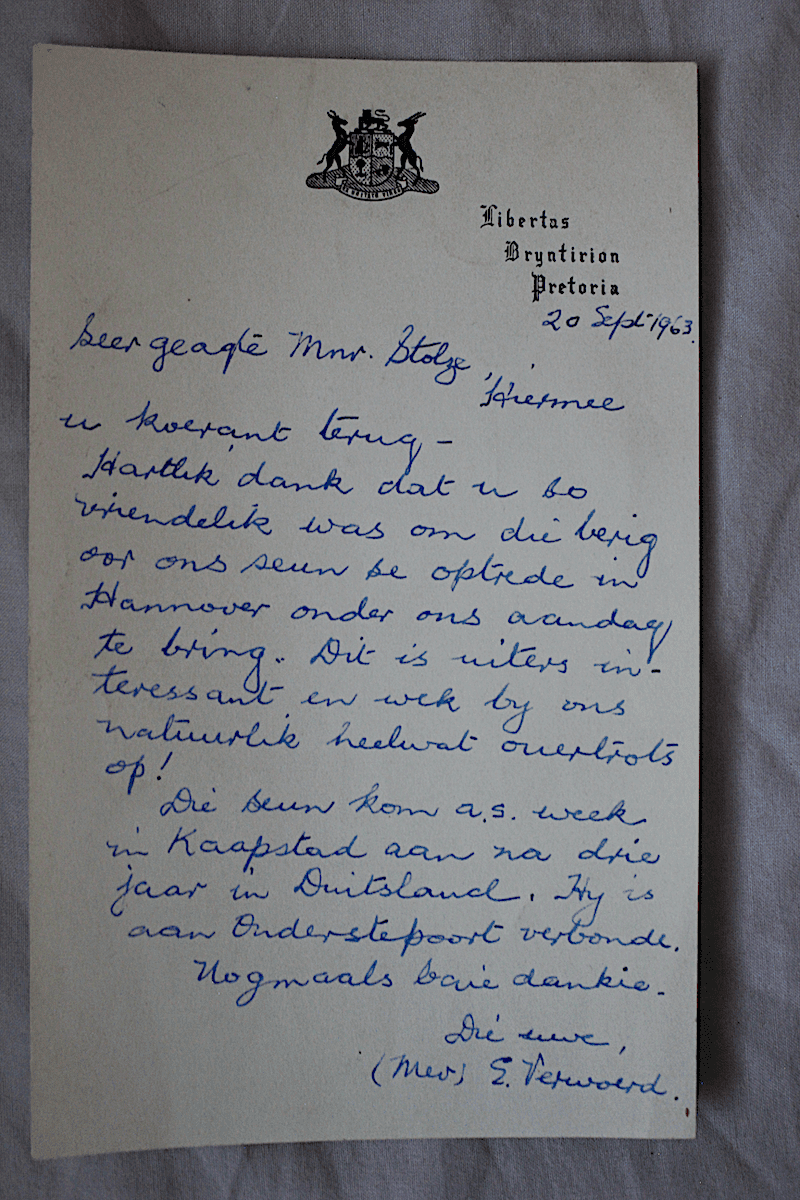 Libertas
Bryntirion
Pretoria
20 Sept 1963.
Seer geagte Mnr. Stolze,
Hiermee
u koerant terug –
Hartlik dank dat u so
vriendelik was om die berig
oor ons seun se optrede in
Hannover onder ons aandag
te bring. Dit is uiters in-
teressant en wek by ons
natuurlik heelwat ouertrots
op!
Die seun kom a.s. week
in Kaapstad aan na drie
jaar in Duitsland. Hy is
aan Onderstepoort verbonde.
Nogmaals baie dankie.
Die uwe,
(Mev) E. Verwoerd.